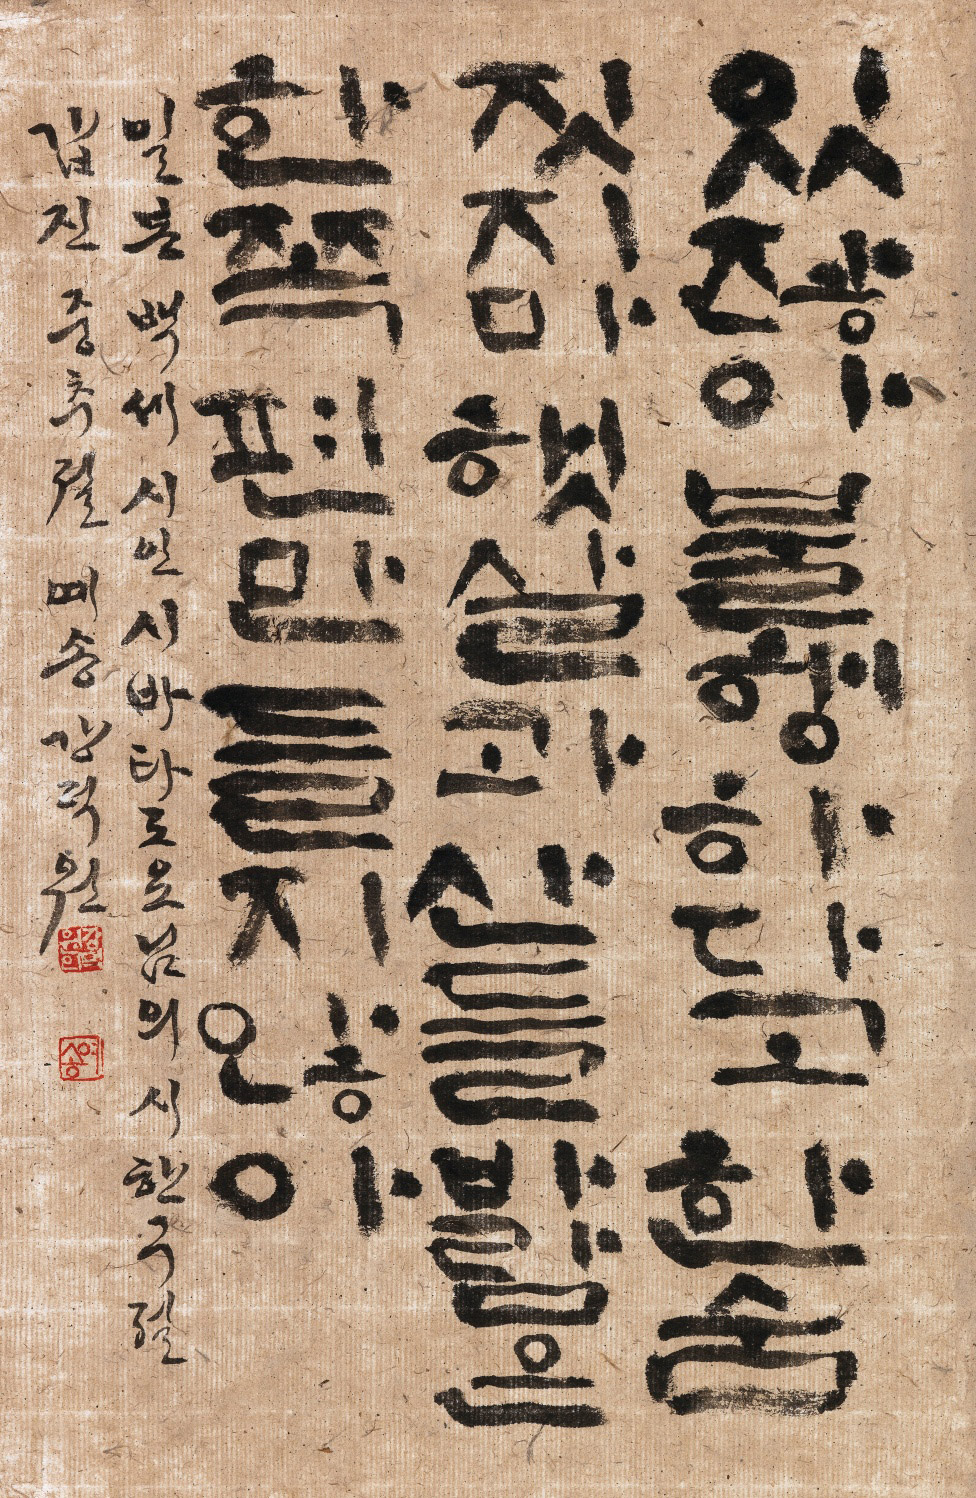 있잖아 불행하다고 한숨
짓지마 햇살과 산들바람은
한쪽 편만 들지 않아
일본 백세 시인 시바타도요님의 시 한구절
갑진 중추절 예송 강덕원